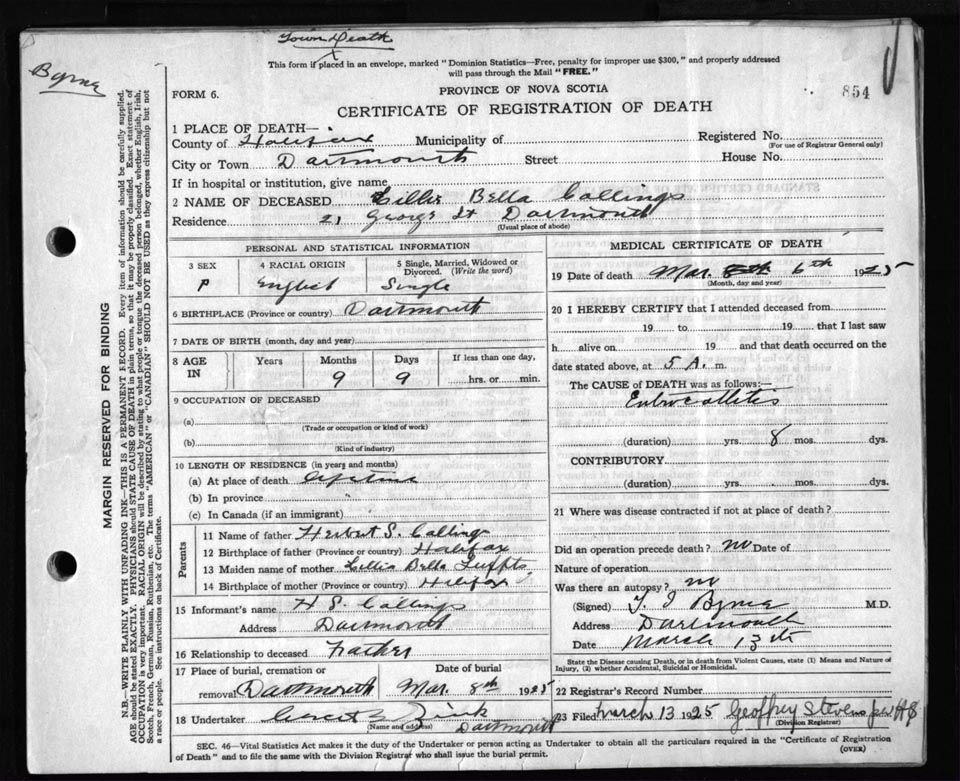 Town Death
Byrne
This form if placed in an envelope, marked "Dominion Statistics—Free, penalty for improper use $300," and properly addressed
will pass through the Mail "FREE."
PROVINCE OF NOVA SCOTIA
854
FORM 6.
CERTIFICATE OF REGISTRATION OF DEATH
1 PLACE OF DEATH—
County of Halifax Municipality of Registered No.
(For use of Registrar General only)
City or Town Dartmouth Street House No.
If in hospital or institution, give name
2 NAME OF DECEASED Lillie Bella Collings
Residence 21 George St Dartmouth
(Usual place of abode)
PERSONAL AND STATISTICAL INFORMATION
3 SEX 4 RACIAL ORIGIN 5 Single, Married, Widowed or Divorced. (Write the word)
English Single
6 BIRTHPLACE (Province or country) Dartmouth
7 DATE OF BIRTH (month, day and year)
8 AGE IN Years Months Days If less than one day,
9 9 hrs. or min.
9 OCCUPATION OF DECEASED
(a)
(Trade or occupation or kind of work)
(b)
(Kind of industry)
10 LENGTH OF RESIDENCE (in years and months)
(a) At place of death Lifetime
(b) In province
(c) In Canada (if an immigrant)
Parents
11 Name of father Herbert S. Colling
12 Birthplace of father (Province or country) Halifax
13 Maiden name of mother Lillia Bella Tuffts
14 Birthplace of mother (Province or country) Halifax
15 Informant's name H S. Collings
Address Dartmouth
16 Relationship to deceased Father
17 Place of burial, cremation or removal Date of burial
Dartmouth Mar. 8th 1925
18 Undertaker Zink
(Name and address) Dartmouth
MEDICAL CERTIFICATE OF DEATH
19 Date of death Mar 6th 1925
(Month, day and year)
20 I HEREBY CERTIFY that I attended deceased from
19 to 19 that I last saw
h alive on 19 and that death occurred on the
date stated above, at 5 A. m.
The CAUSE of DEATH was as follows:—
(duration) yrs. 8 mos. dys.
CONTRIBUTORY
(duration) yrs. mos. dys.
21 Where was disease contracted if not at place of death?
Did an operation precede death? no Date of
Nature of operation
Was there an autopsy? no
(Signed) Byrne M.D.
Address Dartmouth
Date March 13th
State the Disease causing Death, or in death from Violent Causes, state (1) Means and Nature of
Injury, (2) whether Accidental, Suicidal or Homicidal.
22 Registrar's Record Number
23 Filed March 13 1925 Geoffrey Stevens per
(Division Registrar)
SEC. 46—Vital Statistics Act makes it the duty of the Undertaker or person acting as Undertaker to obtain all the particulars required in the "Certificate of Registration
of Death" and to file the same with the Division Registrar who shall issue the burial permit.
(OVER)
MARGIN RESERVED FOR BINDING
N.B.—WRITE PLAINLY WITH UNFADING INK—THIS IS A PERMANENT RECORD. Every item of information should be carefully supplied.
AGE should be stated EXACTLY. PHYSICIANS should STATE CAUSE OF DEATH in plain terms, so that it may be properly classified. Exact statement of
OCCUPATION is very important. RACIAL ORIGIN will be described by stating to what people or tongue the deceased person belonged, whether English, Irish,
Scotch, French, German, Russian, Ruthenian, etc. The terms "AMERICAN" or "CANADIAN" SHOULD NOT BE USED as they express citizenship but not
a race or people. See instructions on back of Certificate.